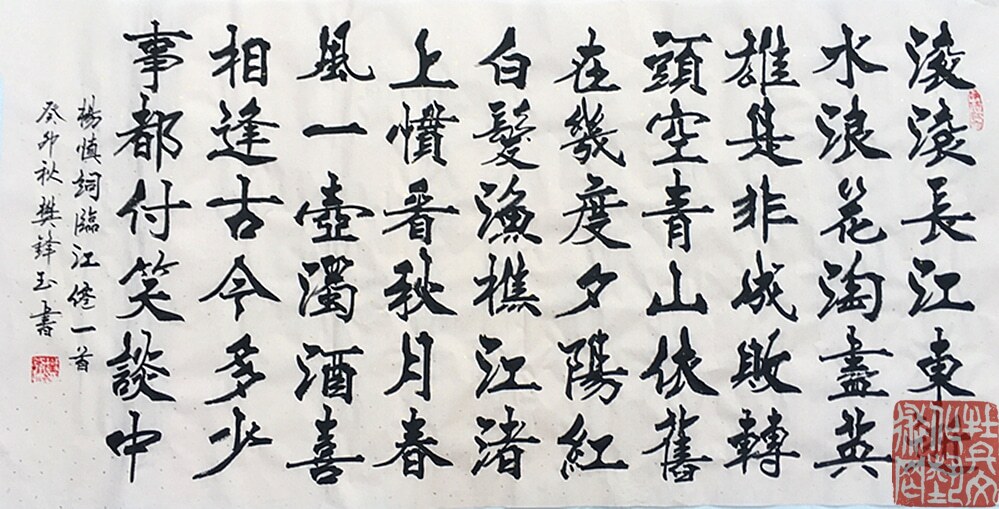 滾滾長江東逝
水浪花淘盡英
雄是非成敗轉
頭空青山依舊
在幾度夕陽紅
白髮漁樵江渚
上慣看秋月春
風一壺濁酒喜
相逢古今多少
事都付笑談中
楊慎詞臨江僊一首
癸卯秋樊鋒玉書